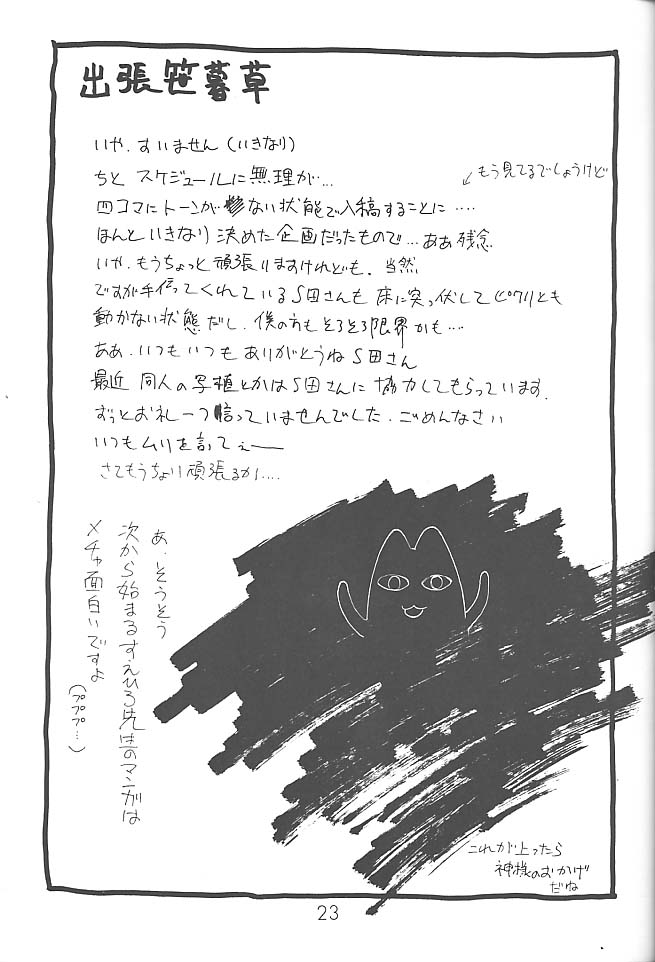 出張笹暮草
いや、すいません(いきなり)
ちと スケジュールに無理が…
↙もう見てるでしょうけど
四コマにトーンがない状態で入稿することに‥‥
ほんといきなり決めた企画だったもので…ああ残念
いや、もうちょっと頑張りますけれども、当然
ですが手伝ってくれているS田さんも床に突っ伏してピクリとも
動かない状態だし、僕の方もそろそろ限界かも‥‥
ああ、いつもいつもありがとうねS田さん
最近同人の写植とかはS田さんに協力してもらっています.
ずっとお礼一つ言っていませんでした.ごめんなさい
いつもムリを言ってぇ――
さてもうちょり頑張るか‥‥
あ、そうそう
次から始まるすえひろ先生のマンガは
メチャ面白いですよ
(プププ…)
これが上ったら
神様のおかげ
だね
23